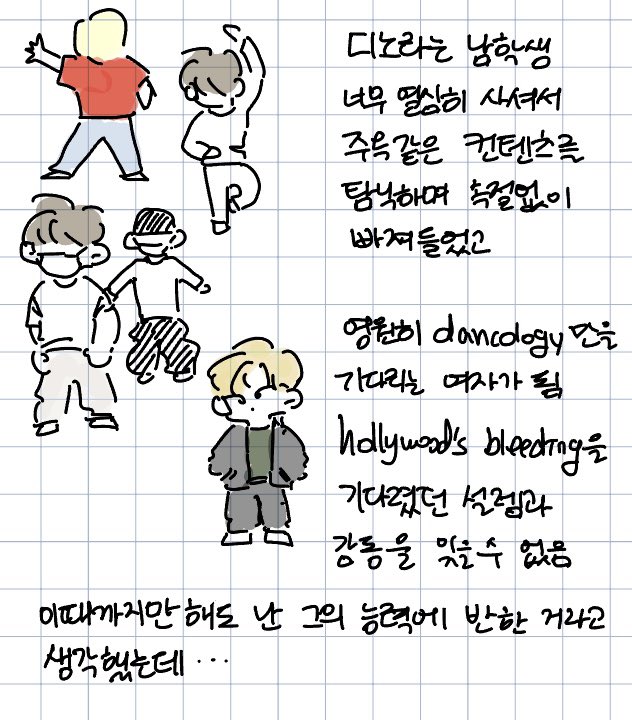 디노라는 남학생
너무 열심히 사셔서
주옥같은 컨텐츠를
탐닉하며 속절없이
빠져들었고
영원히 dancology 만을
기다리는 여자가 됨
hollywood's bleeding을
기다렸던 설렘과
감동을 잊을 수 없음
이때까지만 해도 난 그의 능력에 반한 거라고
생각했는데 ...